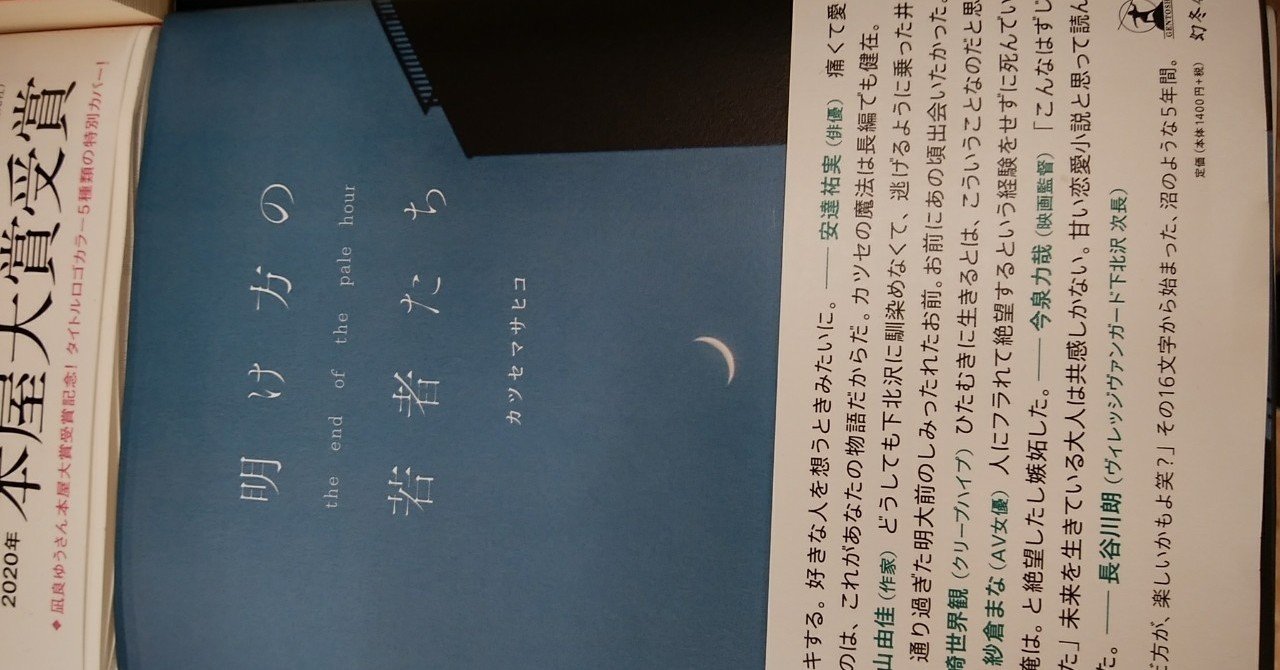 2020年 本屋大賞受賞
◆凪良ゆうさん本屋大賞受賞記念! タイトルロゴカラー5種類の特別カバー!
明け方の
the end of the pale hour
若者たち
カツセマサヒコ
キする。好きな人を想うときみたいに。── 安達祐実(俳優) 痛くて愛
のは、これがあなたの物語だからだ。カツセの魔法は長編でも健在。
山由佳(作家) どうしても下北沢に馴染めなくて、逃げるように乗った井
通り過ぎた明大前のしみったれたお前。お前にあの頃出会いたかった。
崎世界観(クリープハイプ) ひたむきに生きるとは、こういうことなのだと思
紗倉まな(AV女優) 人にフラれて絶望するという経験をせずに死んでい
俺は。と絶望したし嫉妬した。── 今泉力哉(映画監督) 「こんなはずじ
た」未来を生きている大人は共感しかない。甘い恋愛小説と思って読ん
た。── 長谷川朗(ヴィレッジヴァンガード下北沢 次長)
方が、楽しいかもよ笑?」その16文字から始まった、沼のような5年間。
定価(本体1400円+税)
幻冬